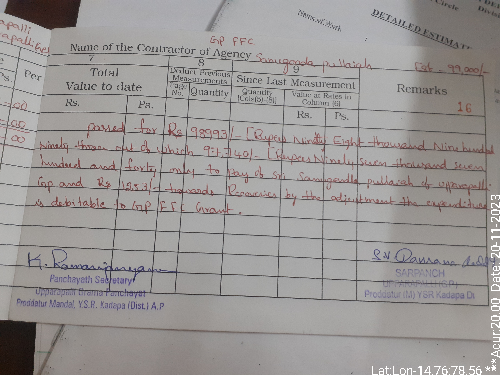 GP FFC
Name of the Contractor of Agency Samugonda pullaiah Est 99,000/-
7 8 9
Total Value to date
Deduct Previous Measurements
Since Last Measurement
Remarks
Per
No. Quantity
Quantity
Value at Rates in Column (6)
16
Rs. Ps. Rs. Ps.
passed for Rs 98993/- [Rupees Ninety Eight thousand Nine hundred
Ninety three out of which 97740/- [Rupees Ninety seven thousand seven
hundred and forty only to pay of Sri Samugonda pullaiah of upparapalli
Gp and Rs 1253/- towards Recoveries by the adjustment the expenditure
is debitable to GP FFC Grant.
Panchayath Secretary
Upparapalli Grama Panchayat
Proddatur Mandal, Y.S.R. Kadapa (Dist.) A.P
SARPANCH
UPPARAPALLI (G.P.)
Proddatur (M) YSR Kadapa Di
DETAILED ESTIMATE
Name of Work
Circle
Lat:Lon-14.76:78.56 ***Acur:20.00 Date:20-11-2023